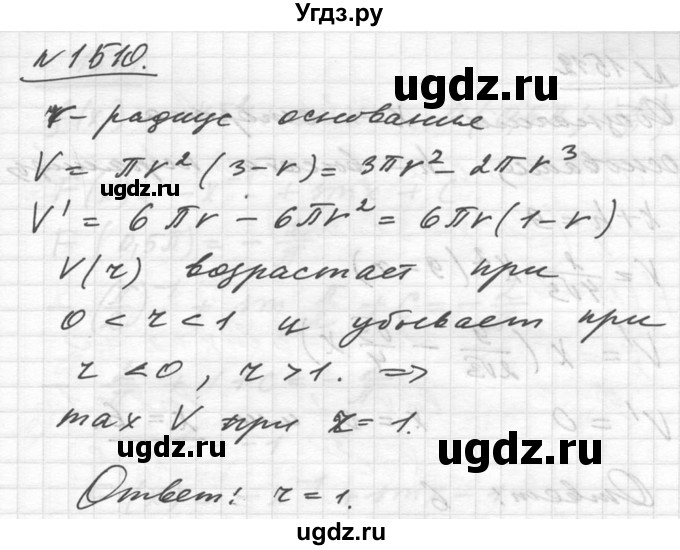 Угдз.ру
№ 1510.
r - радиус основание
ugdz.ru
V = πr²(3-r) = 3πr² - 2πr³
ugdz.ru
V' = 6πr - 6πr² = 6πr(1-r)
V(r) возрастает при
0 < r < 1 и убывает при
r < 0, r > 1. ⇒
max V при r = 1.
ugdz.ru
ugdz.ru
Ответ: r = 1.
ugdz.ru